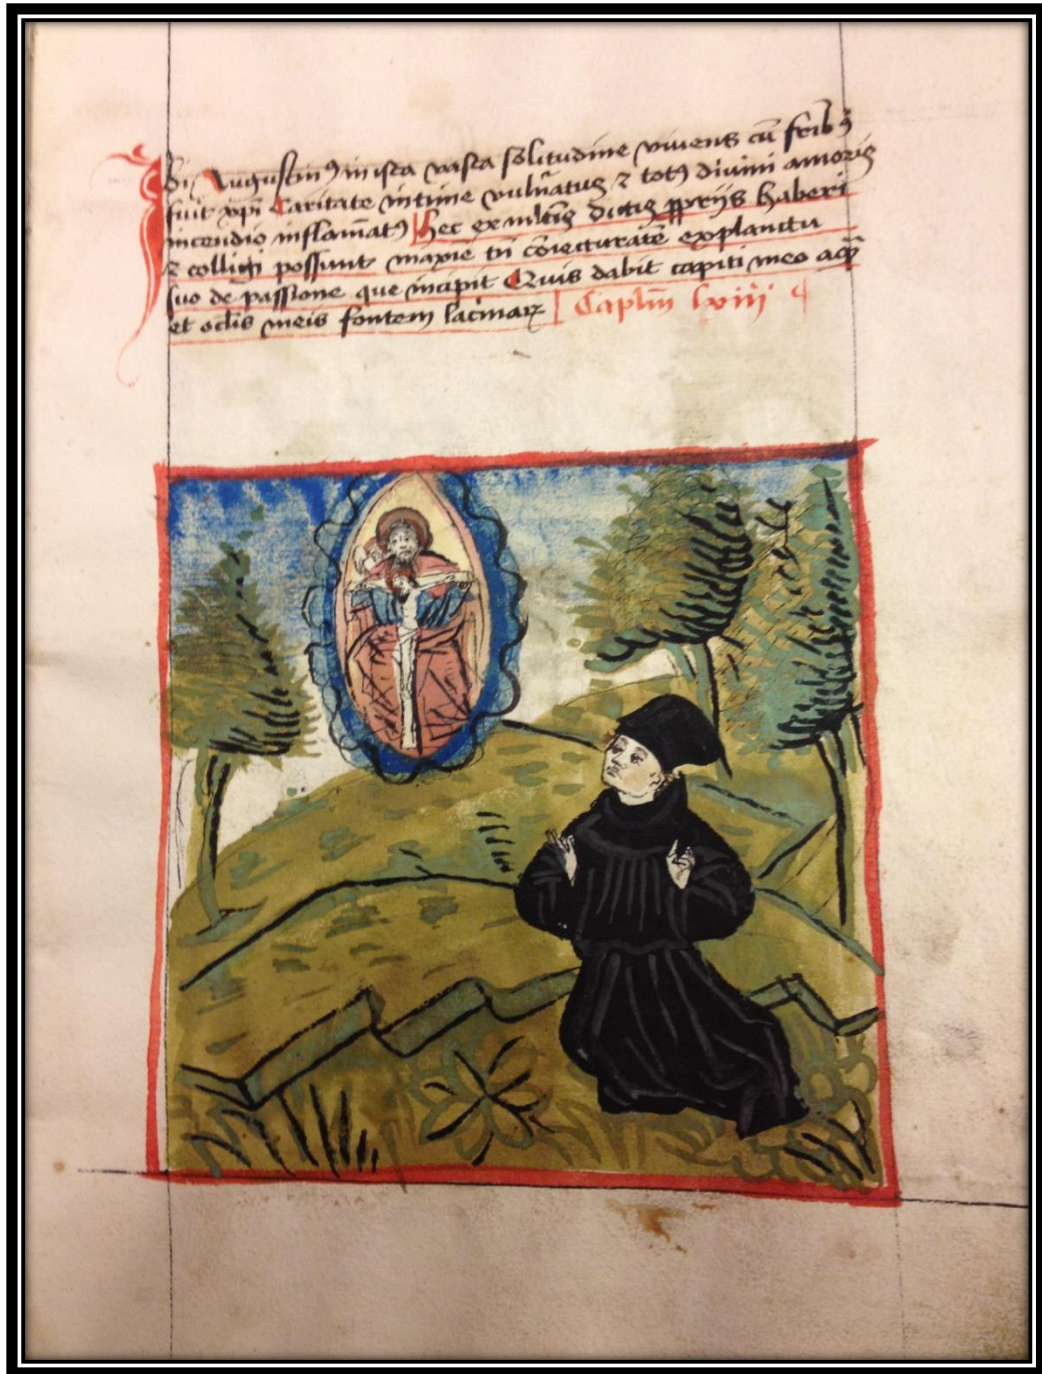 Ibi Augustin9 in ista vasta solitudine viuens cū frib9
fuit xpi Caritate intime vulnatus ⁊ tot9 diuini amoris
incendio inflamat9 Hec ex multis dictis pprijs haberi
⁊ colligi possunt maxie tn̄ cōiecturatē explanctu
suo de passione que incipit Quis dabit capiti meo aq̄
et oclis meis fontem lacimaꝝ Caplm̄ lxiij